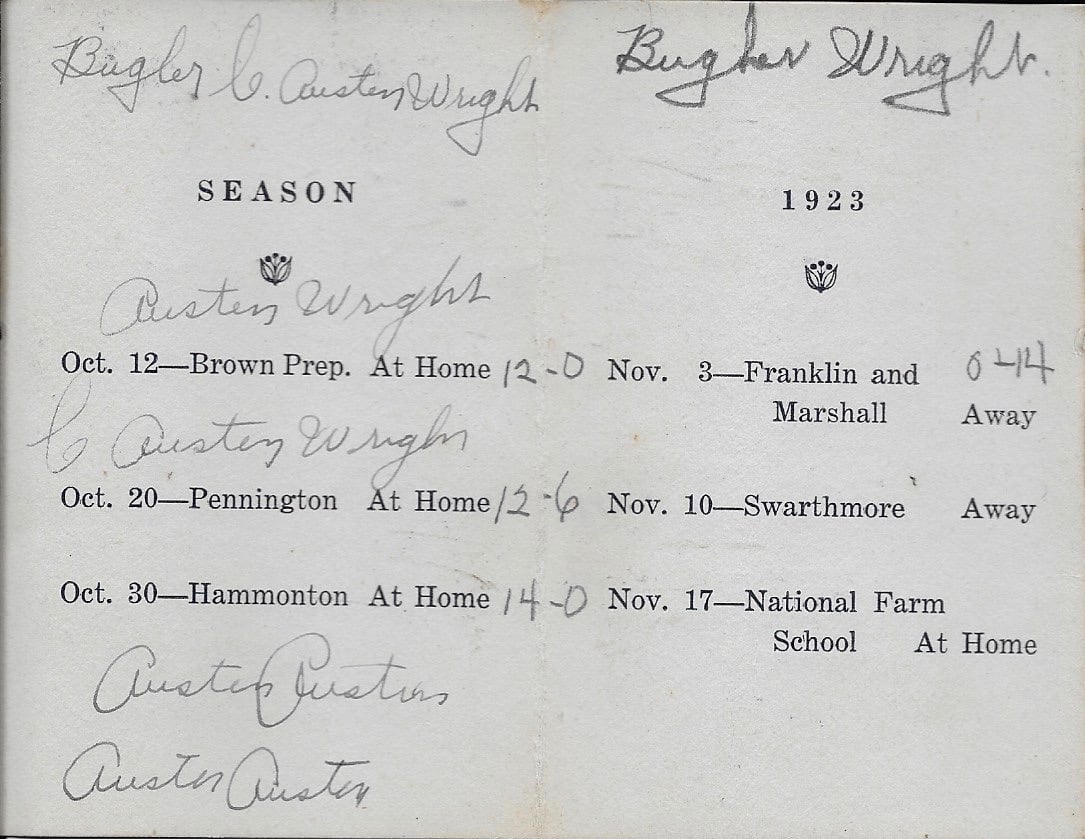 Bugler C. Austen Wright
SEASON
Austen Wright
Oct. 12—Brown Prep. At Home 12-0
C Austen Wright
Oct. 20—Pennington At Home 12-6
Oct. 30—Hammonton At Home 14-0
Austen Austen
Austen Austen
Bugler Wright.
1923
Nov. 3—Franklin and 0-14
Marshall Away
Nov. 10—Swarthmore Away
Nov. 17—National Farm
School At Home